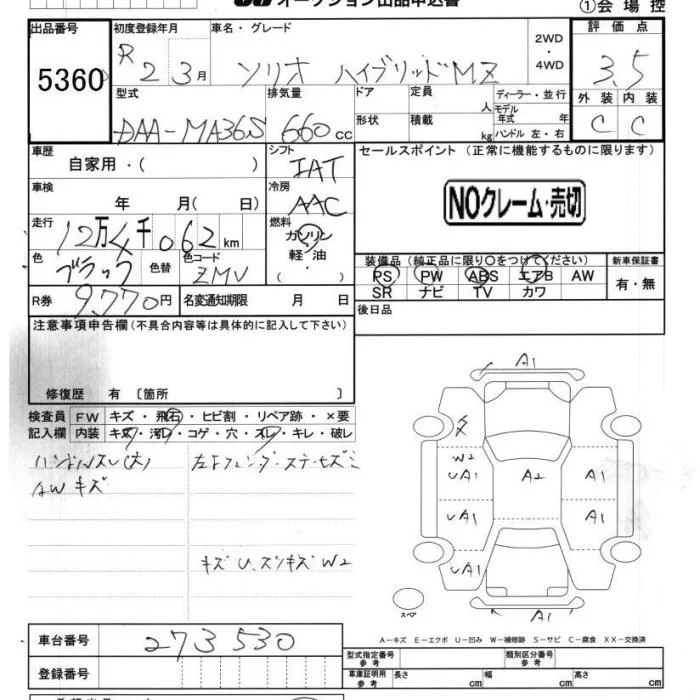 オークション出品申込書
①会場控
出品番号 初度登録年月 車名・グレード 評価点
5360
R 2 3月 ソリオ ハイブリッドMZ 2WD ・ 4WD 3.5
型式 排気量 ドア 定員 人 ディーラー・並行 外装 内装
DAA-MA36S 660cc 形状 積載 kg モデル年式 年 ハンドル 左・右 C C
車歴 自家用・( ) シフト IAT セールスポイント (正常に機能するものに限ります)
車検 年 月( 日) 冷房 AAC
NOクレーム・売切
走行 12万4千062km 燃料 ガソリン・軽油 ( ・ )
色 ブラック 色替 色コード ZMV
装備品(純正品に限り〇をつけてください) 新車保証書
PS PW ABS エアB AW 有・無
SR ナビ TV カワ
R券 9,770円 名変通知期限 月 日 後日品
注意事項申告欄(不具合内容等は具体的に記入して下さい)
修復歴 有 〔箇所 〕
検査員 FW キズ・飛石・ヒビ割・リペア跡・×要
記入欄 内装 キズ・汚レ・コゲ・穴・スレ・キレ・破レ
ハンドルスレ(大) 左Fフェンダーステーセズミ
AWキズ
キズU、スリキズW2
A1
W2
UA1 A2 A1
UA1 A1
UA1
A1
スペア
A－キズ E－エクボ U－凹み W－補修跡 S－サビ C－腐食 XX－交換済
車台番号 273530
型式指定番号 参考 類別区分番号 参考
登録番号 車庫証明用 参考 長さ cm 幅 cm 高さ cm